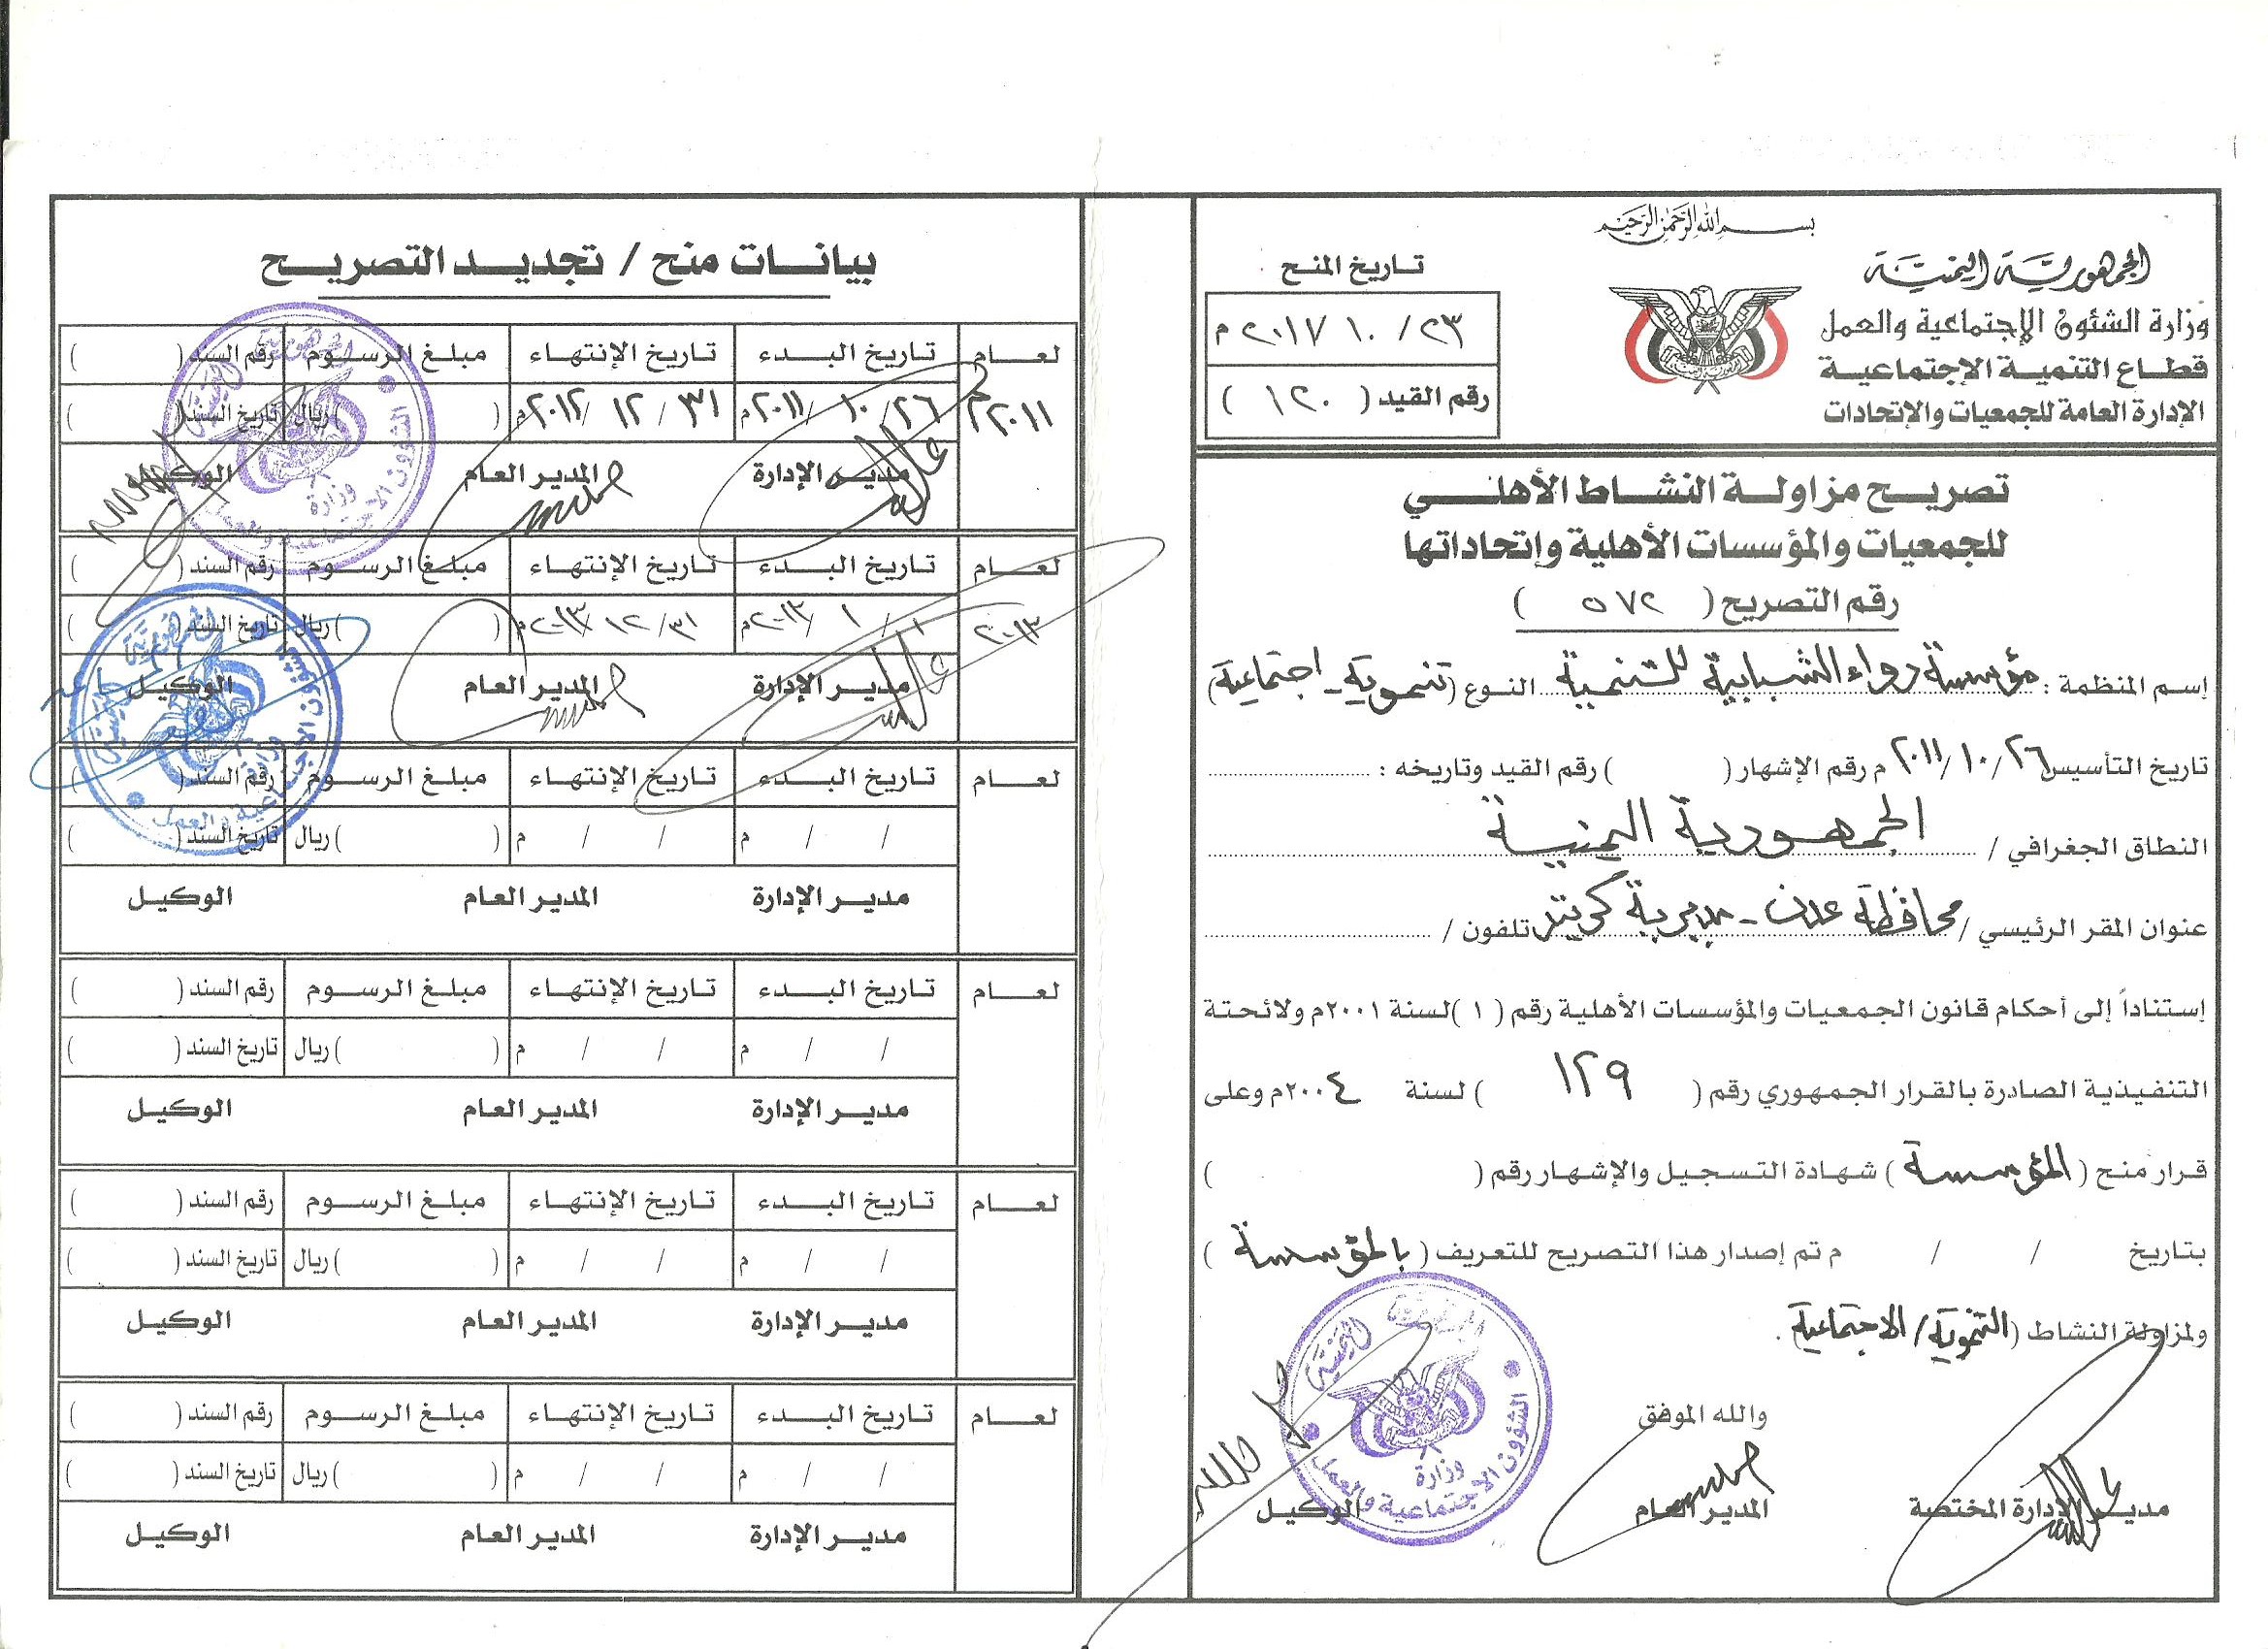 بسم الله الرحمن الرحيم
الجمهورية اليمنية
وزارة الشئون الإجتماعية والعمل
قطاع التنمية الإجتماعية
الإدارة العامة للجمعيات والإتحادات
تاريخ المنح
٢٣/ ١٠ ٢٠١٧ م
رقم القيد ( ١٢٠ )
تصريح مزاولة النشاط الأهلي
للجمعيات والمؤسسات الأهلية وإتحاداتها
رقم التصريح ( ٥٧٢ )
إسم المنظمة : مؤسسة رواء الشبابية للتنمية النوع (تنموية - اجتماعية)
تاريخ التأسيس ٢٦/ ١٠/ ٢٠١١ م رقم الإشهار ( ) رقم القيد وتاريخه :
النطاق الجغرافي / الجمهورية اليمنية
عنوان المقر الرئيسي / محافظة عدن - مديرية كريتر تلفون /
إستناداً إلى أحكام قانون الجمعيات والمؤسسات الأهلية رقم ( ١ ) لسنة ٢٠٠١م ولائحتة
التنفيذية الصادرة بالقرار الجمهوري رقم ( ١٢٩ ) لسنة ٢٠٠٤م وعلى
قرار منح ( المؤسسة ) شهادة التسجيل والإشهار رقم ( )
بتاريخ / / م تم إصدار هذا التصريح للتعريف ( بالمؤسسة )
ولمزاولة النشاط (التنموية/ الاجتماعية) .
والله الموفق
مدير الإدارة المختصة المدير العام الوكيل
الجمهورية اليمنية
وزارة الشؤون الاجتماعية والعمل
بيانات منح / تجديد التصريح
لعام تاريخ البدء تاريخ الإنتهاء مبلغ الرسوم رقم السند ( )
٢٠١١م ٢٦/ ١٠/ ٢٠١١م ٣١/ ١٢/ ٢٠١٢م ( ) ريال تاريخ السند ( )
مدير الإدارة المدير العام الوكيل
الجمهورية اليمنية
وزارة الشؤون الاجتماعية والعمل
لعام تاريخ البدء تاريخ الإنتهاء مبلغ الرسوم رقم السند ( )
٢٠١٣ ١/ ١/ ٢٠١٣م ٣١/ ١٢/ ٢٠١٣م ( ) ريال تاريخ السند ( )
مدير الإدارة المدير العام الوكيل
الجمهورية اليمنية
وزارة الشؤون الاجتماعية والعمل
لعام تاريخ البدء تاريخ الإنتهاء مبلغ الرسوم رقم السند ( )
/ / م / / م ( ) ريال تاريخ السند ( )
مدير الإدارة المدير العام الوكيل
لعام تاريخ البدء تاريخ الإنتهاء مبلغ الرسوم رقم السند ( )
/ / م / / م ( ) ريال تاريخ السند ( )
مدير الإدارة المدير العام الوكيل
لعام تاريخ البدء تاريخ الإنتهاء مبلغ الرسوم رقم السند ( )
/ / م / / م ( ) ريال تاريخ السند ( )
مدير الإدارة المدير العام الوكيل
لعام تاريخ البدء تاريخ الإنتهاء مبلغ الرسوم رقم السند ( )
/ / م / / م ( ) ريال تاريخ السند ( )
مدير الإدارة المدير العام الوكيل